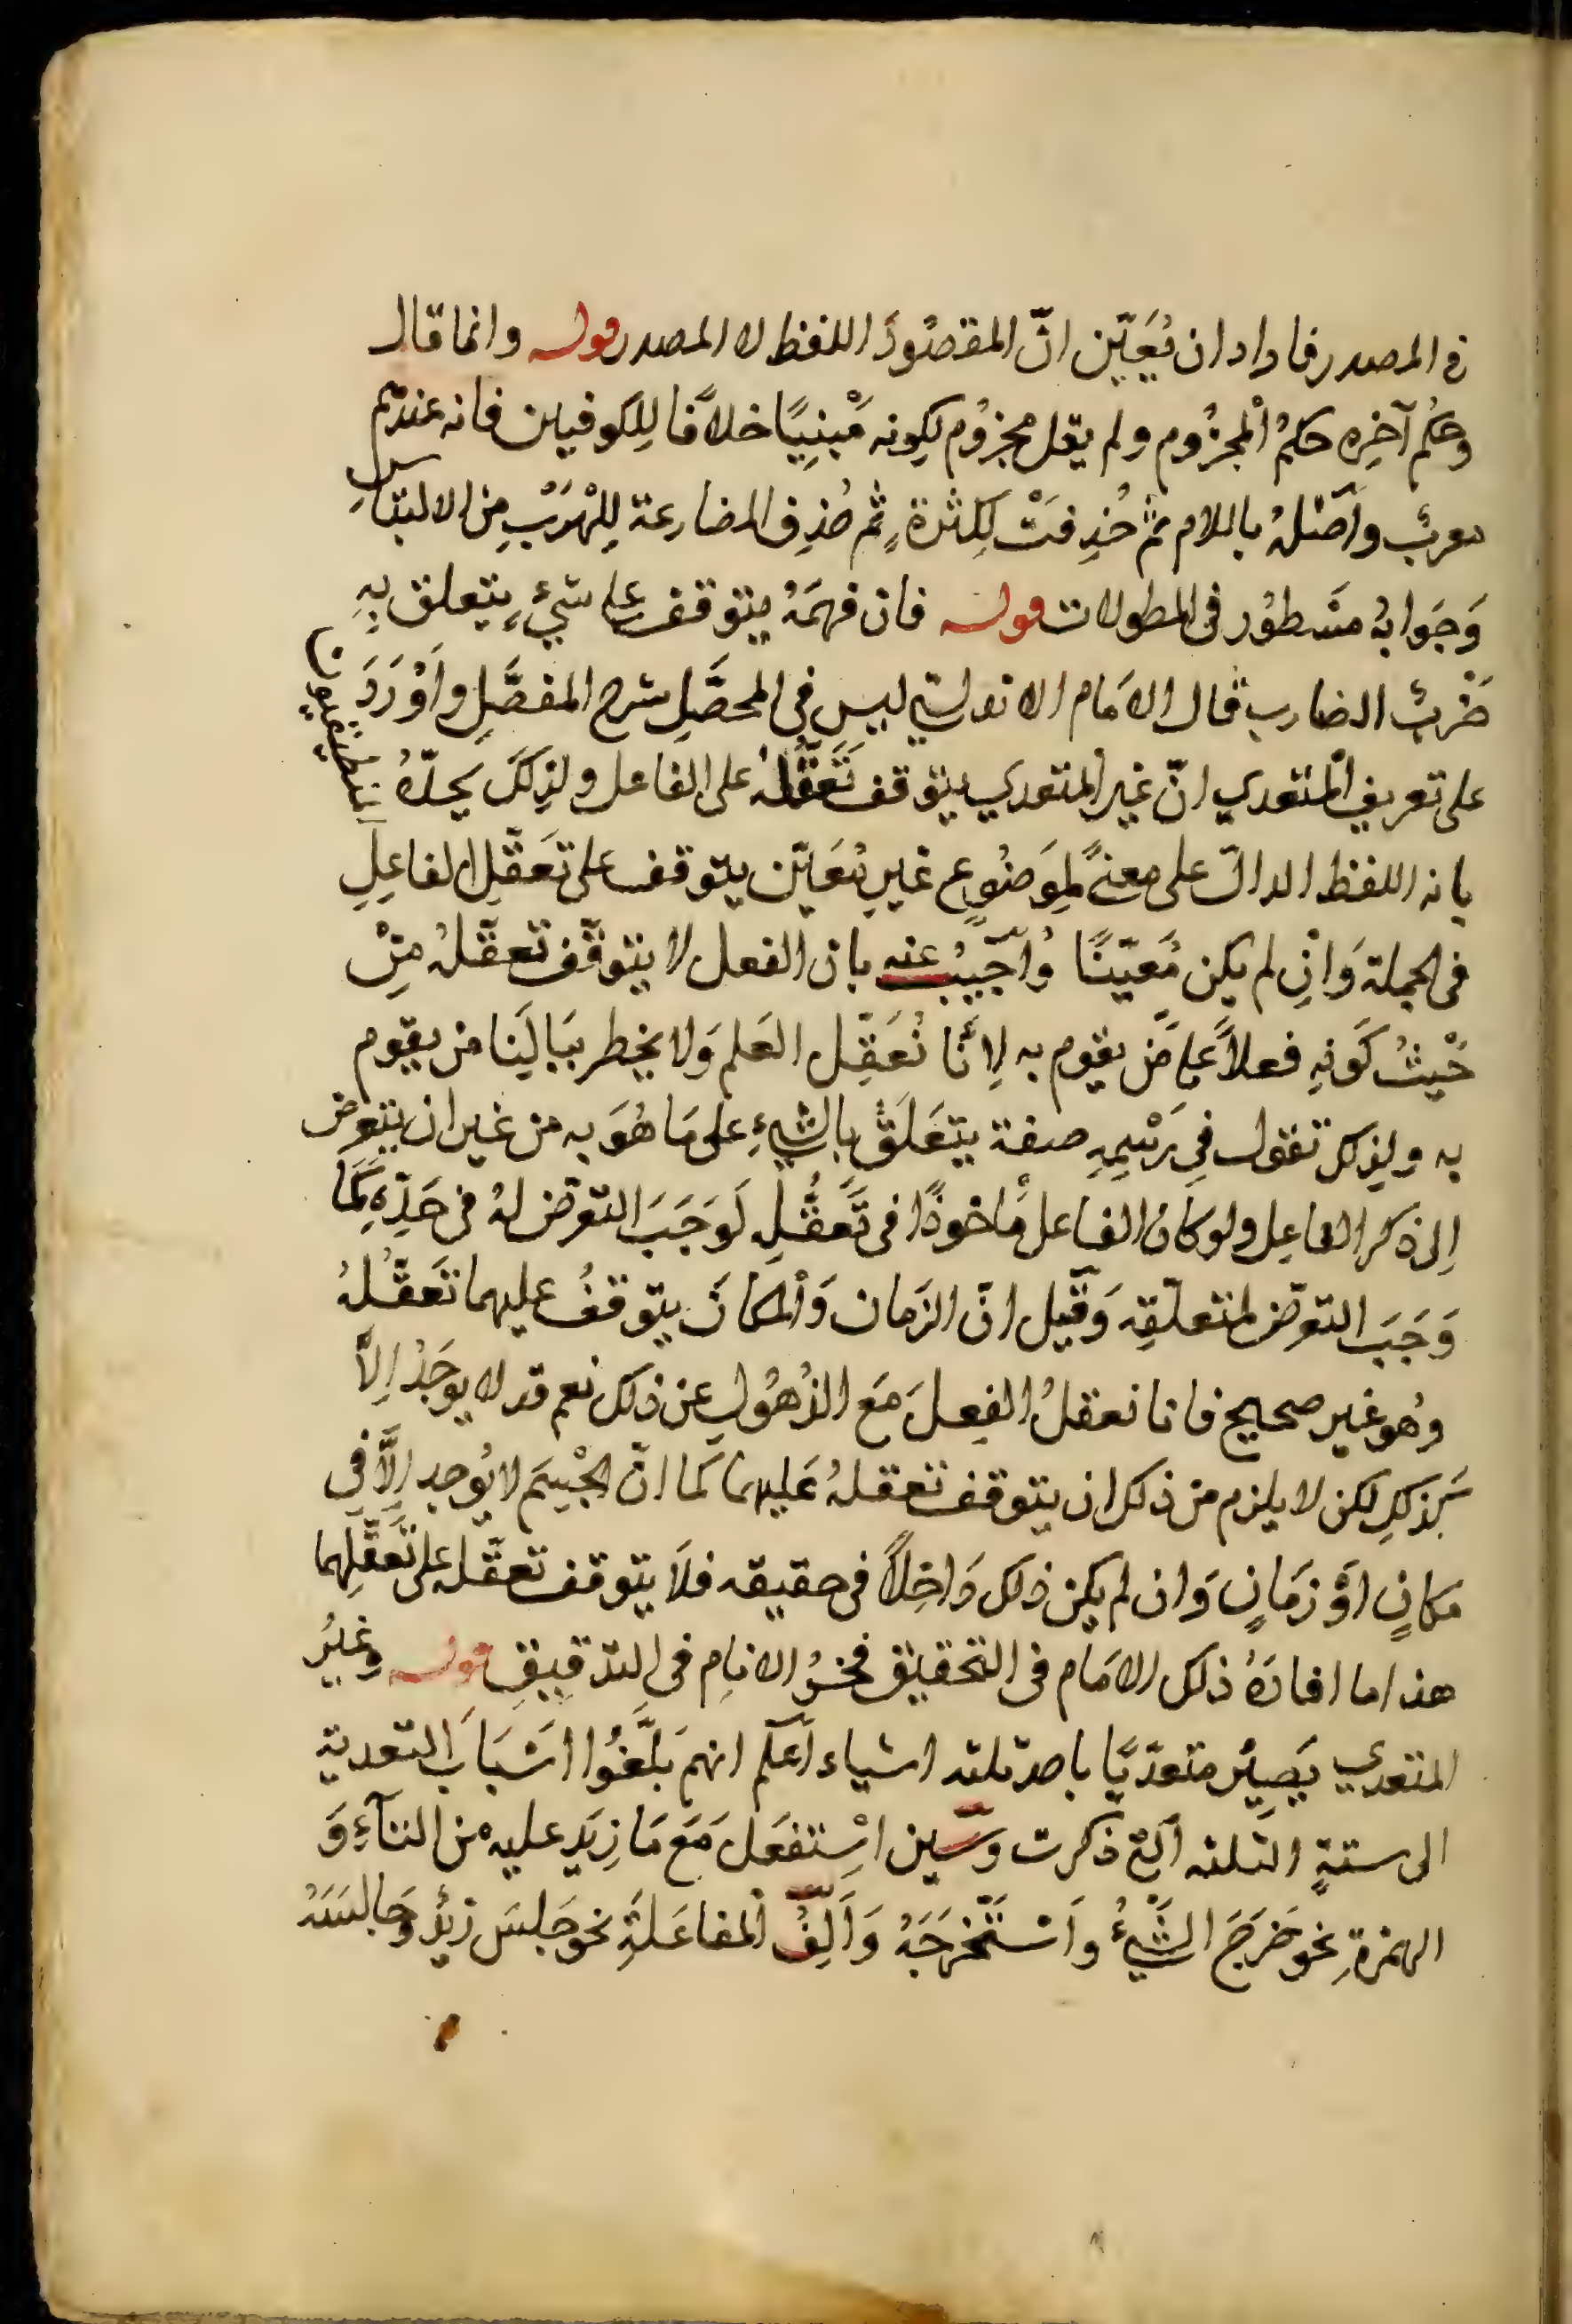 في المصدر فاراد ان يُعَيّن انّ المقصُودَ اللفظ لا المصدر قوله وانما قال
وحُكم آخِره حكمُ المجزُوم ولم يقل مجزوُم لكونه مَبْنِيًا خلافًا لِلكوفيين فانه عندهم
معربُ وأصْلهُ باللام ثمّ حُذِفَتْ لِكثرةٍ ثم حُذِف المضارعة لِلْهَرَبِ مِن الالتباس
وَجَوابهُ مسْطوُر في المطولات قوله فان فهمَهُ يتوقف على شيءٍ يتعلق بِهِ
ضَرْبُ الضارب قال الامَام الاندلسي ليس في المحصَّلِ شرح المفصَّلِ وأوْرَدَ
على تعريف المتعدي انّ غير المتعدي يتوقف تَعَقُّلهُ على الفاعل ولِذلكَ يحدّهُ
بانه اللفظ الدالّ على معنىً لِمَوضُوعٍ غيرِ مُعَيّن يتوقف على تَعَقّلِ الفاعِلِ
في الجملة وَانِ لم يكن مُعَيّنًا وُاجِيبُ عنه بان الفعل لا يتوقّف تعقّلهُ مِنْ
حَيْثُ كَونِهِ فعلاً على مَن يقوم به لِاَنّا نُعَقِّل العَلم وَلا يخطر بَبالِنَا من يقوم
به ولِذلك تقول فِي رَسْمِهِ صفة يتعَلَقُ بالشيءِ على مَا هُوَ به من غير ان يتعرض
اِلى ذكر الفاعِل ولو كان الفاعل مأخوذًا في تَعَقُّلِهِ لَوَجَبَ التعرّض لهُ في حَدِّهِ كَمَا
وَجَبَ التعرّض لمتعلّقِه وَقيل انّ الزمَان وَالمكانَ يتوقفُ عليهما تَعَقُّلهُ
وهُو غير صحيح فانا نعقلُ الفِعلَ مَع الذُهُولِ عن ذلك نعم قد لا يوجَدُ اِلاَّ
بذلك لكن لا يلزم من ذلك ان يتوقف تعقلهُ عَليهما كما انّ الجْسِمَ لا يُوجد اِلاَّ في
مكانٍ اوَْ زمَانٍ وَان لم يكن ذلك دَاخِلاً في حقيقه فلاَ يتوقف تعقّله على تَعَقُّلِهما
هذا ما افادَهُ ذلك الامَام في التحقيق فخرُ الانام في التدقيقِ قوله وغيُر
المتعدي يَصِيُر متعدّيًا باحد ثلثه اشياء اَعلَم انهم بَلَّغُوا اسْبَابَ التعدية
الى ستةٍ الثلثه الّتي ذكرت وَسّين اسْتِفعَلَ مَعَ مَا زِيَد عليه من التآءِ وَ
الهمزةِ نحو خَرَجَ الشَيْءُ واَسْتَخْرَجَهُ وَاَلِفُ المفاعَلَةِ نحو جَلسَ زيْدُ وَجَالسَتهُ